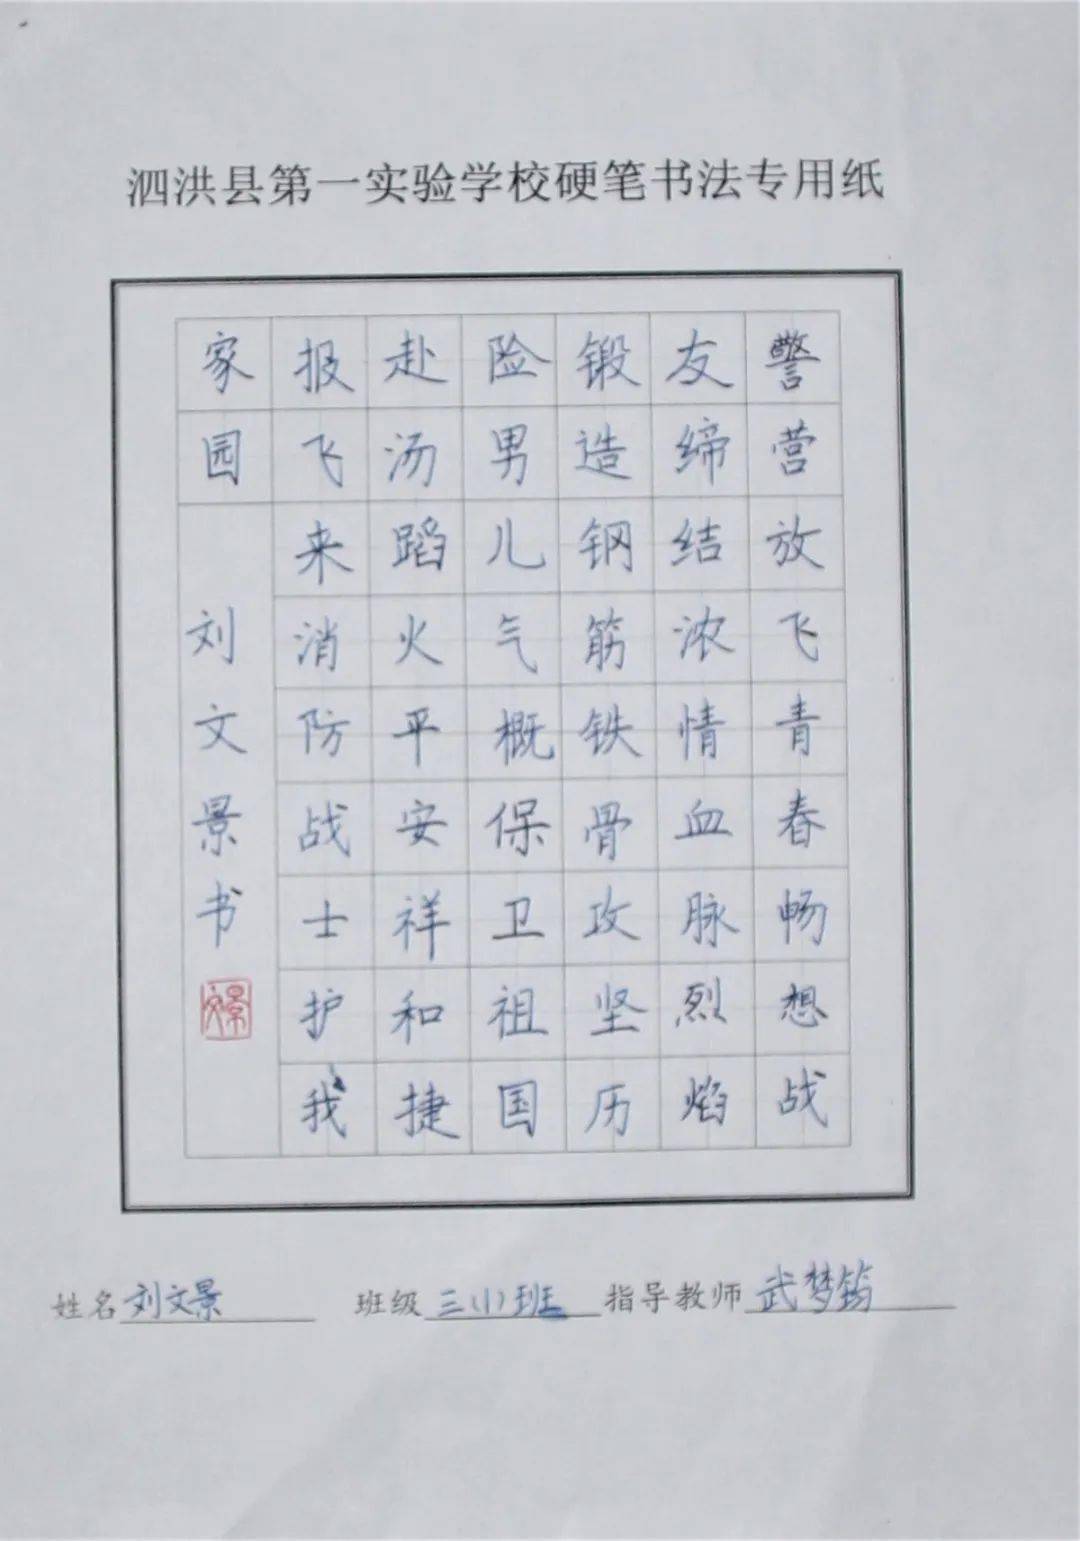 泗洪县第一实验学校硬笔书法专用纸
警营放飞青春畅想战
友缔结浓情血脉烈焰
锻造钢筋铁骨攻坚历
险男儿气概保卫祖国
赴汤蹈火平安祥和捷
报飞来消防战士护我
家园
刘文景书
文景
姓名 刘文景 班级 三(1)班 指导教师 武梦筠